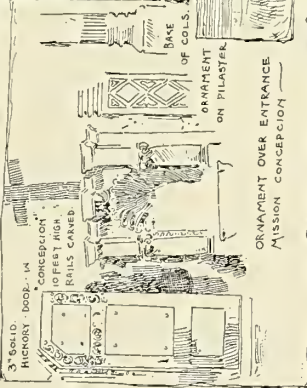 3" SOLID.
HICKORY · DOOR · IN
"CONCEPCION".
10 FEET HIGH.
RAILS CARVED.
BASE
OF COLS.
ORNAMENT
ON PILASTER
ORNAMENT OVER ENTRANCE
MISSION CONCEPCION